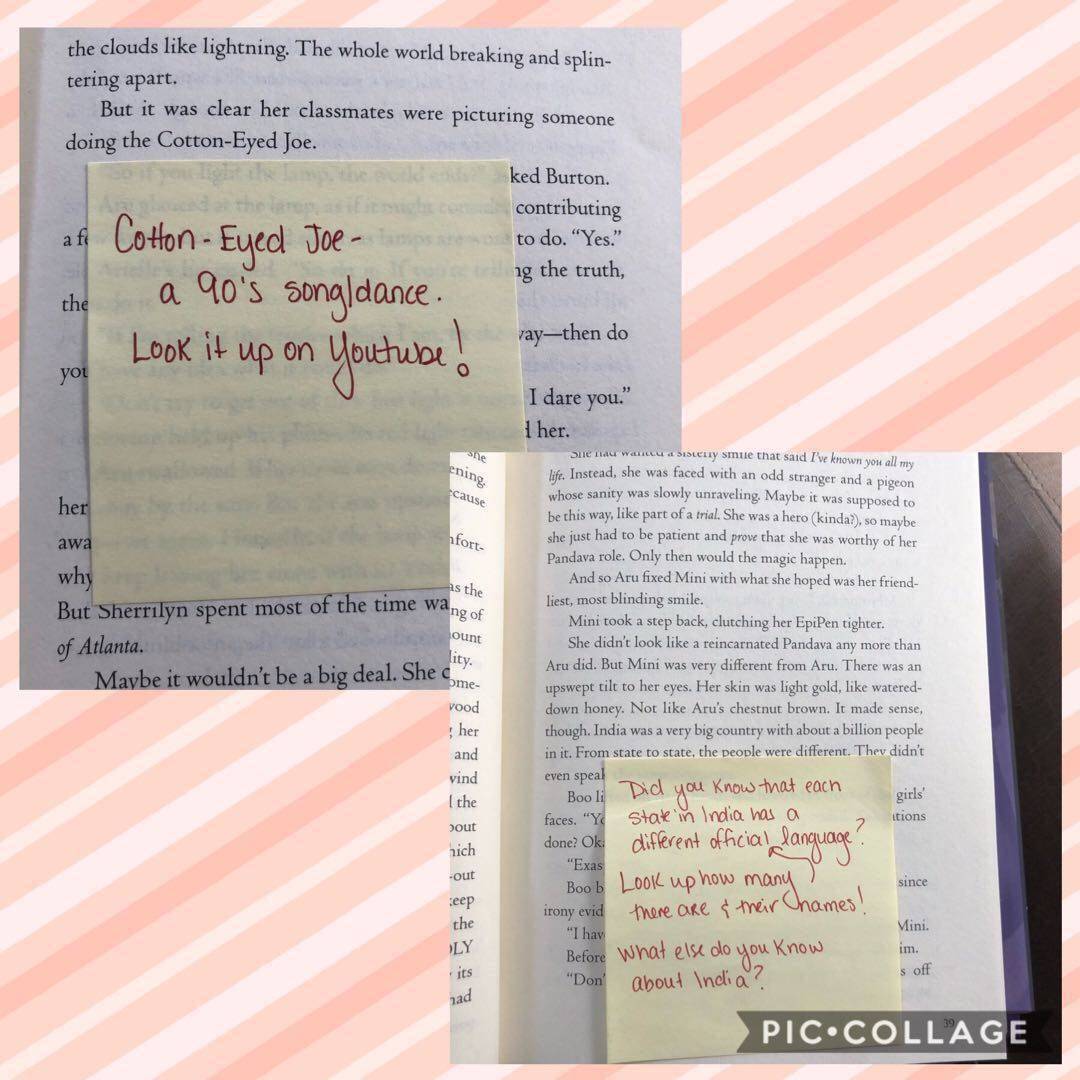 the clouds like lightning. The whole world breaking and splin-
tering apart.
But it was clear her classmates were picturing someone
doing the Cotton-Eyed Joe.
ked Burton.
contributing
a fe
to do. “Yes.”
ng the truth,
the
way—then do
you
I dare you.”
d her.
her
awa
why
But Sherrilyn spent most of the time wa
of Atlanta.
Maybe it wouldn’t be a big deal. She c
Cotton-Eyed Joe-
a 90's song/dance.
Look it up on Youtube!
she
ening.
cause
nfort-
as the
ng of
ount
lity.
ome-
wood
her
and
wind
l the
out
hich
-out
keep
the
OLY
its
had
She had wanted a sisterly smile that said I’ve known you all my
life. Instead, she was faced with an odd stranger and a pigeon
whose sanity was slowly unraveling. Maybe it was supposed to
be this way, like part of a trial. She was a hero (kinda?), so maybe
she just had to be patient and prove that she was worthy of her
Pandava role. Only then would the magic happen.
And so Aru fixed Mini with what she hoped was her friend-
liest, most blinding smile.
Mini took a step back, clutching her EpiPen tighter.
She didn’t look like a reincarnated Pandava any more than
Aru did. But Mini was very different from Aru. There was an
upswept tilt to her eyes. Her skin was light gold, like watered-
down honey. Not like Aru’s chestnut brown. It made sense,
though. India was a very big country with about a billion people
in it. From state to state, the people were different. They didn’t
even speak
Boo li
girls’
faces. “Yo
ations
done? Ok
“Exas
Boo b
since
irony evid
“I hav
Mini.
Before
im.
“Don’
s off
39
Did you know that each
state in India has a
different official language?
Look up how many
there are & their names!
What else do you know
about India?
PIC•COLLAGE